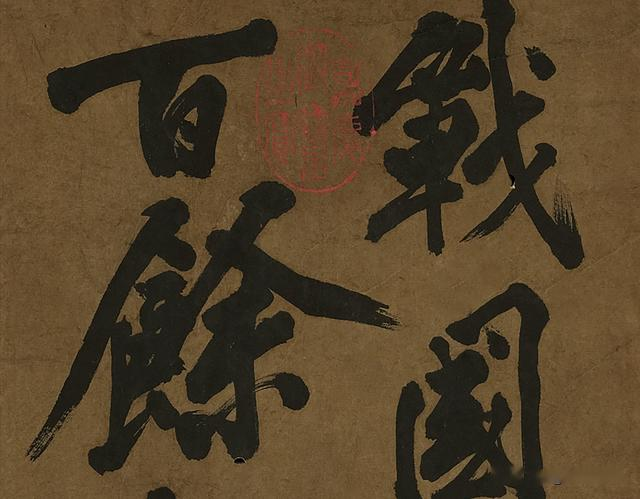 戰國
百餘